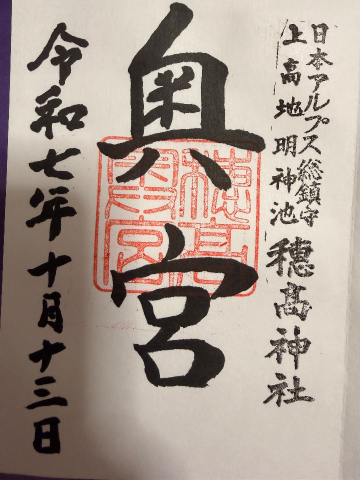 日本アルプス総鎮守
上高地明神池 穂髙神社
奥宮
穂高奥宮
令和七年十月十三日